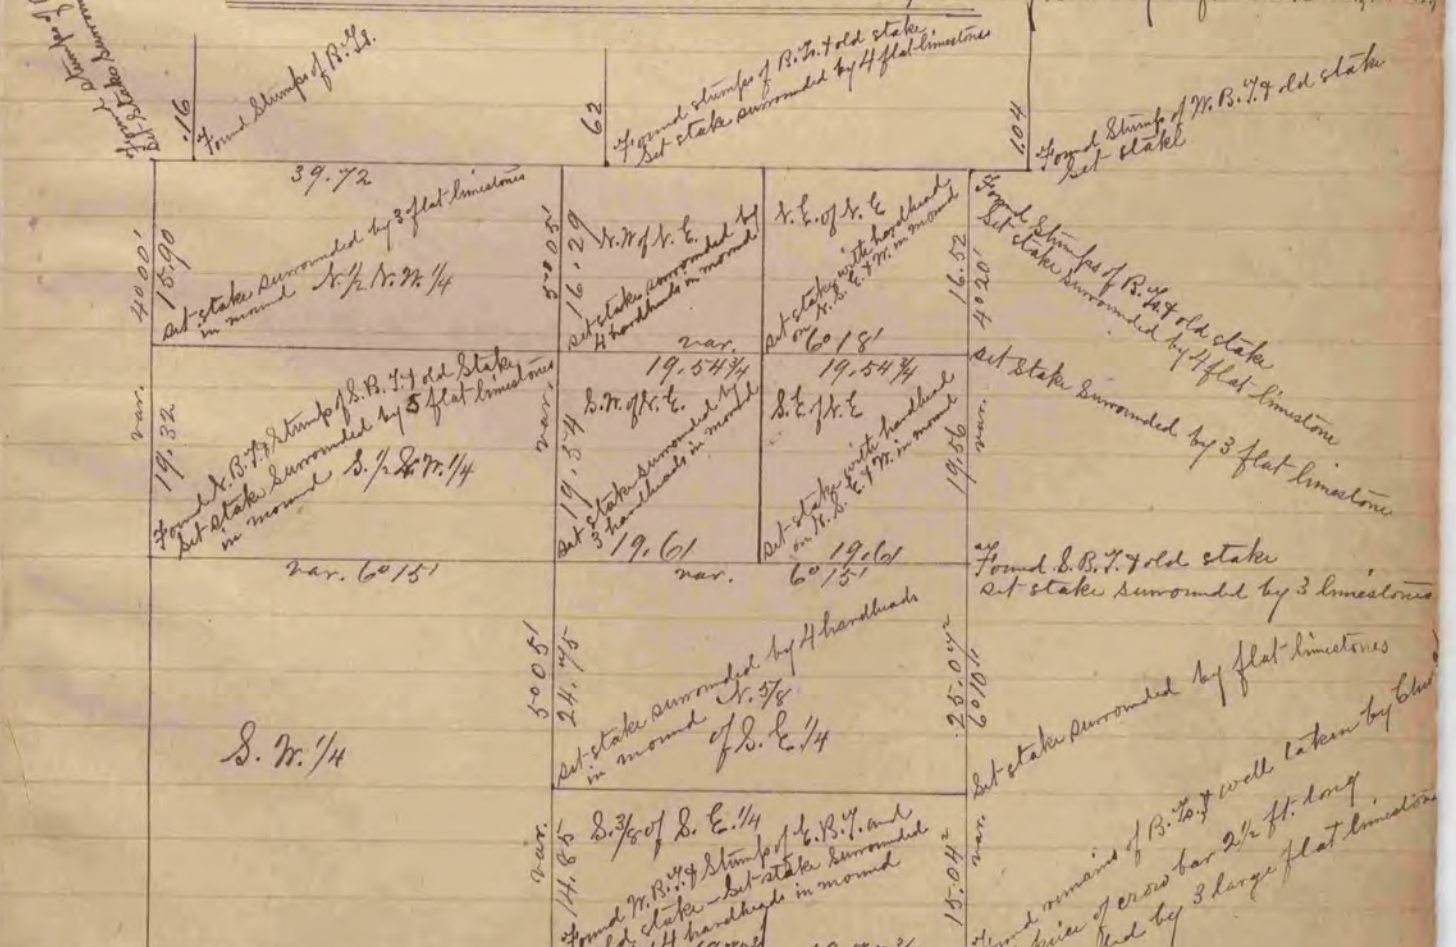 Found Stumps of
Set stake
.16
Found Stumps of B.Ts.
62
Found stumps of B.Ts. & old stake
Set stake surrounded by 4 flat limestones
1.04
Found Stump of W. B.T. & old stake
Set stake
39.72
4°00'
15.90
set stake surrounded by 3 flat limestones
in mound
N. 1/2 N.W. 1/4
5°05'
16.29
N.W of N.E.
set stake surrounded by
4 hardheads in mound
N.E. of N.E
set stake with hardhead
on N. S. E. & W. in mound
16.52
4°20'
Found Stumps of B.Ts. & old stake
Set stake surrounded by 4 flat limestone
var.
6°18'
19.54 3/4
19.54 3/4
set stake surrounded by 3 flat limestone
var.
19.32
Found N. B.T. & Stump of S. B.T. & old Stake
Set stake surrounded by 5 flat limestones
in mound
S. 1/2 N.W. 1/4
var.
19.54
S.W. of N.E.
set stake surrounded by
3 hardheads in mound
S.E. of N.E
set stake with hardhead
on N. S. E. & W. in mound
19.56
var.
19.61
19.61
var. 6°15'
var.
6°15'
Found S. B.T. & old stake
set stake surrounded by 3 limestones
5°05'
24.75
set stake surrounded by 4 hardheads
in mound
N. 5/8
of S.E. 1/4
25.07 2
6°10'
Set stake surrounded by flat limestones
S.W. 1/4
var.
14.85
S. 3/8 of S.E. 1/4
Found W. B.T. & Stump of E. B.T. and
old stake - Set stake surrounded
4 hardheads in mound
15.04 2
var.
Found remains of B.Ts. & well taken by
of crow bar 2 1/2 ft. long
by 3 large flat limestone